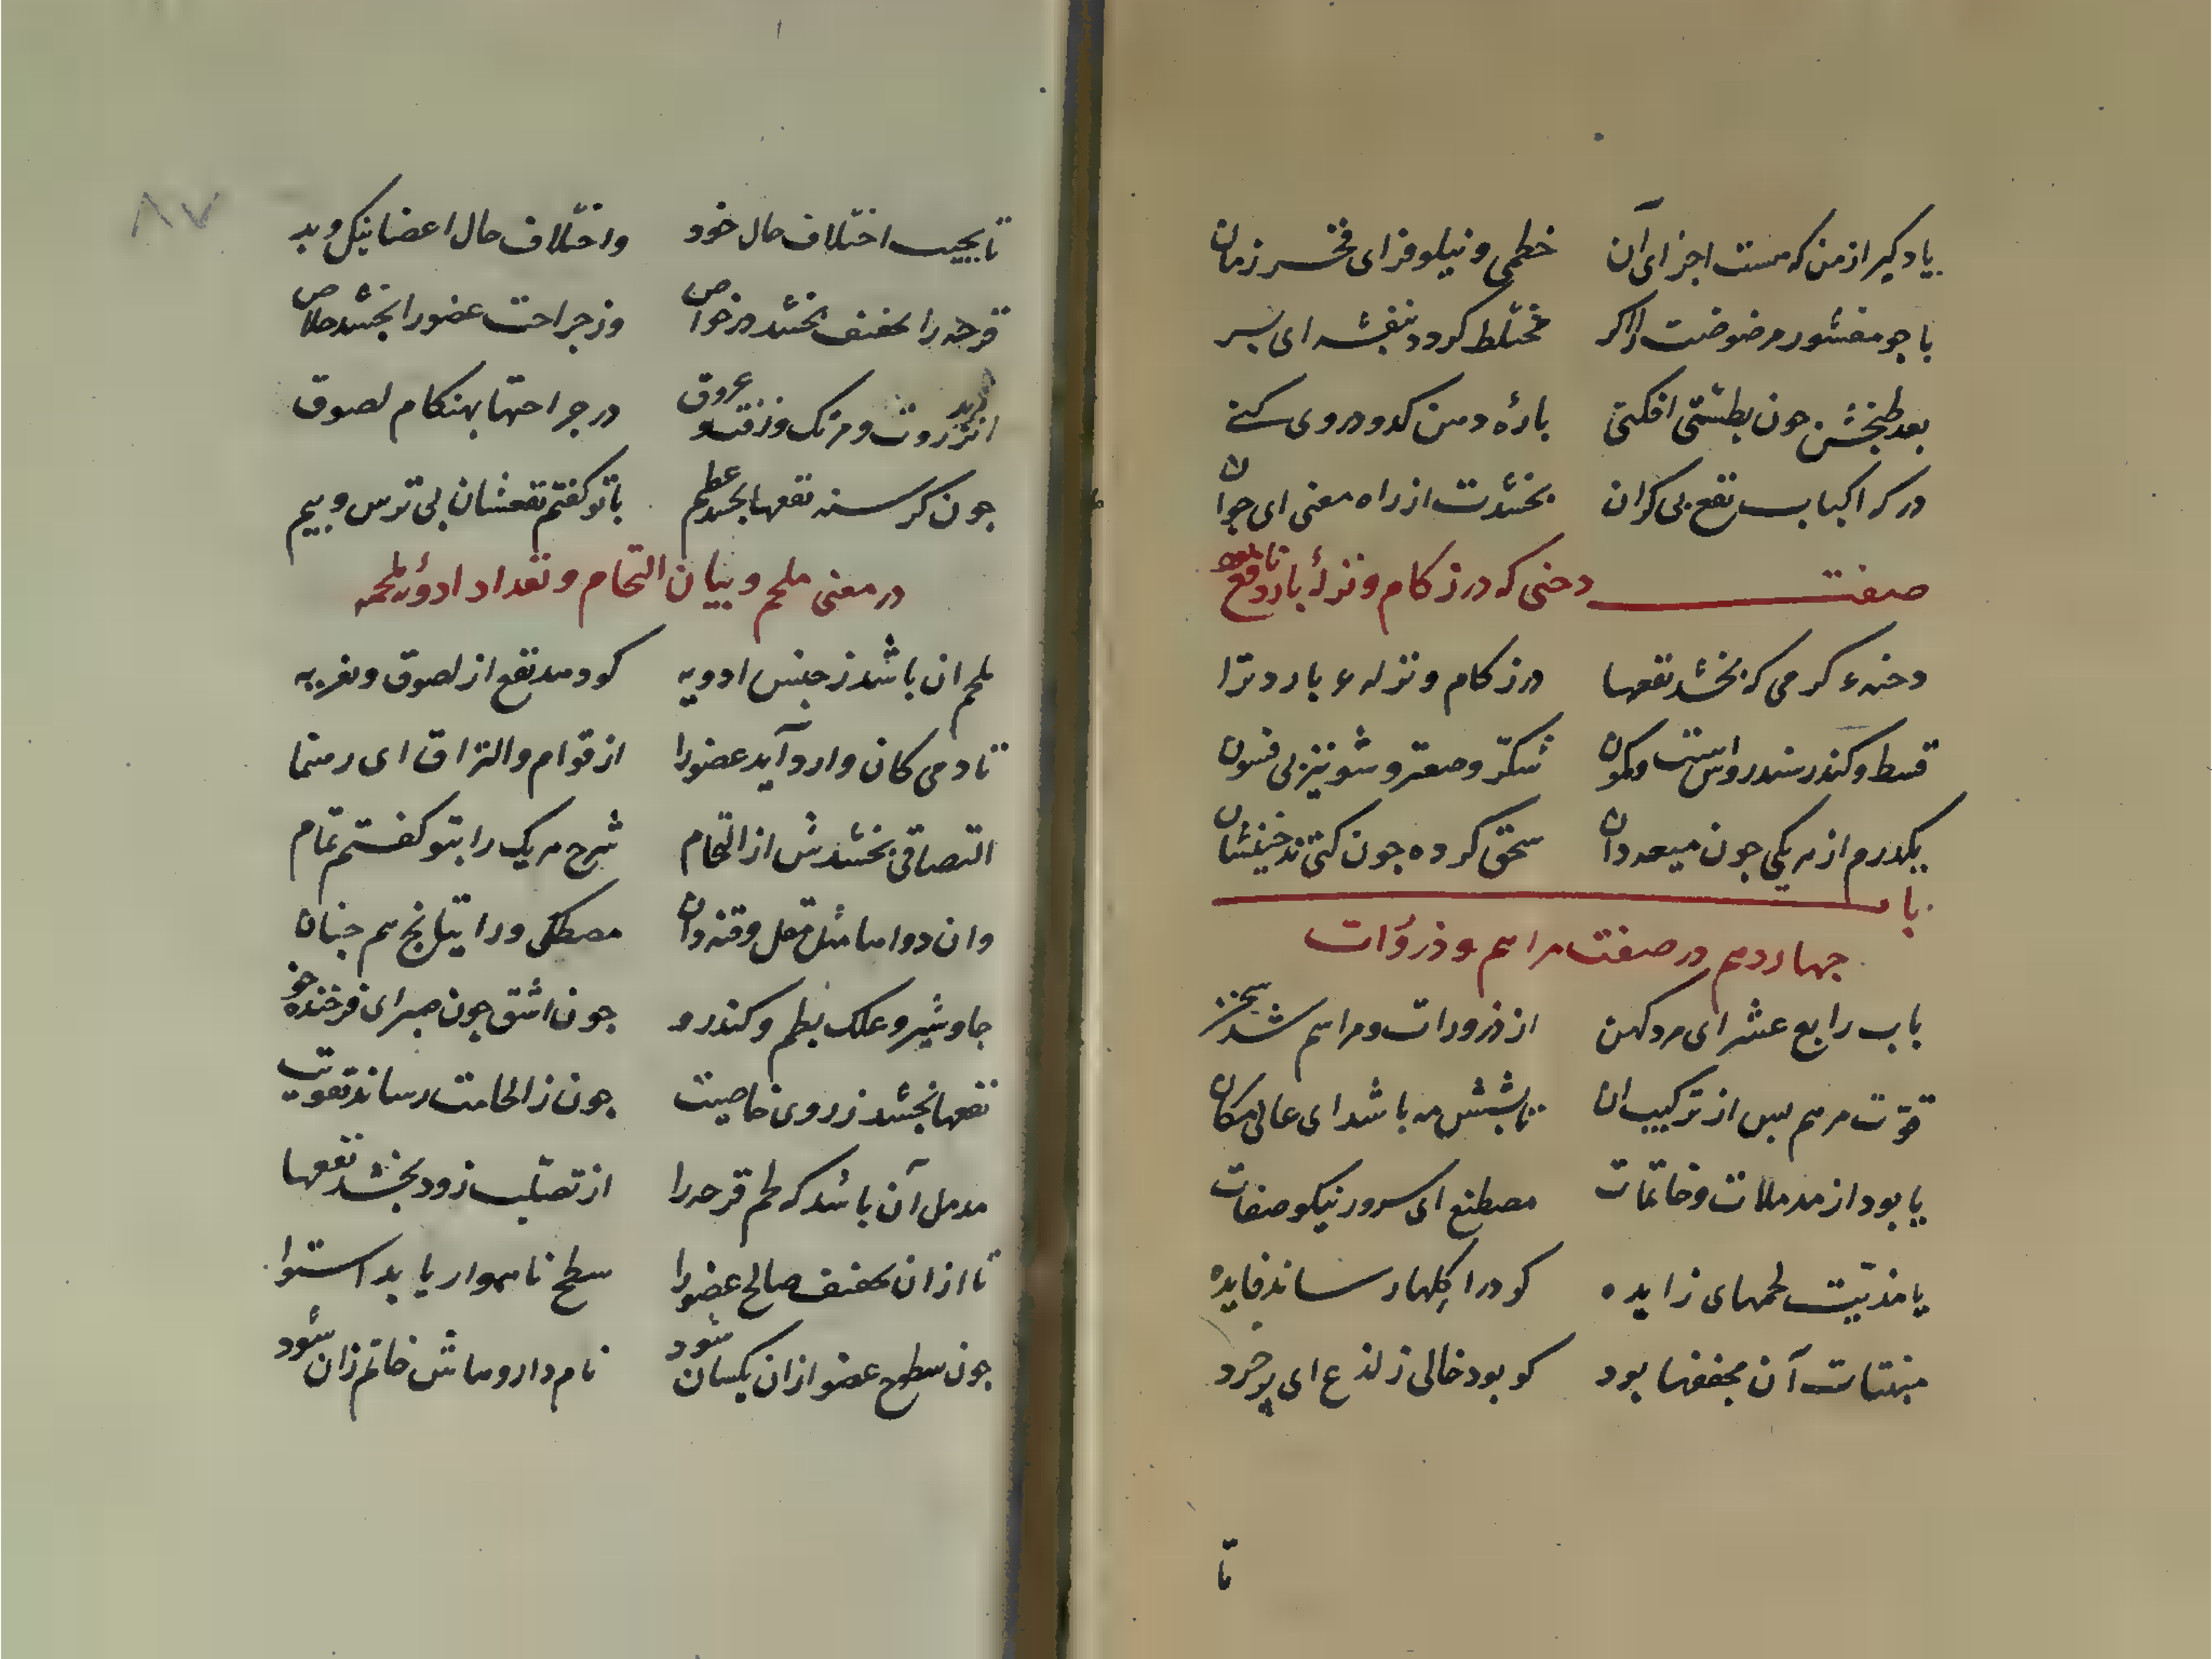 یاد کیر از من که هست اجزای آن خطمی و نیلوفر ای فخر زمان
با جو مقشور مرضوضت اکر مختلط کردد بنفشه ای پسر
بعد طبخش جون بطشتی افکنی پاره دهن کدو در وی کنی
در کر اکباب نفع بی کران بخشدت از راه معنی ای جوان
صفت دخنی که در زکام و نزلهٔ بارد نافع بود
دخنهء کرمی که بخشد نفعها در زکام و نزلهء بارد ترا
قسط و کندر سندروس است و کمون شکر و صعتر و شونیز بی فسون
یکدرم از هر یکی جون میعه دان سحق کرده جون کنی تدخینشان
باب
جهاردهم در صفت مراهم و ذرؤات
باب رابع عشر ای مرد کهن از ذرورات و مراهم شد سخن
قوّت مرهم پس از ترکیب ان تا بشش مه باشد ای عالی مکان
یا بود از مدملات و خاتمات مصطنع ای سرور نیکو صفات
یا مذیبت لحمهای زایده کو در اکلها رساند فایده
منبتات آن مجففها بود کو بود خالی ز لذع ای پر خرد
تا
۸۷
تا بحسب اختلاف حال خود واختلاف حال اعضا نیک و بد
قرحه را تجفیف بخشد در خواص وز جراحت عضو را بخشد خلاص
انزروت و مرتک و زفت و عروق در جراحتها بهنکام لصوق
جون کرسنه نفعها بخشد عظیم با تو کفتم نفعشان بی ترس و بیم
در معنی ملحم و بیان التحام و تعداد ادوئه ملحمه
ملحم ان باشد ز جنس ادویه کو دهد نفع از لصوق و تغریه
تا دمی کان وارد آید عضو را از قوام و التزاق ای رهنما
التصاقی بخشدش از التحام شرح هر یک را بتو کفتم تمام
وان دواها مثل مقل و قنه دان مصطکی و راتیانج هم جنان
جاوشیر و علک بطم و کندر و جون اشق جون صبر ای فرخنده خو
نفعها بخشد ز روی خاصیت جون ز الحامت رساند تقویت
مدمل آن باشد که لحم قرحه را از تصلّب زود بخشد نفعها
تا ازان تجفیف صالح عضو را سطح ناهموار یابد استوا
جون سطح عضو ازان یکسان شود نام داروهاش خاتم زان شود